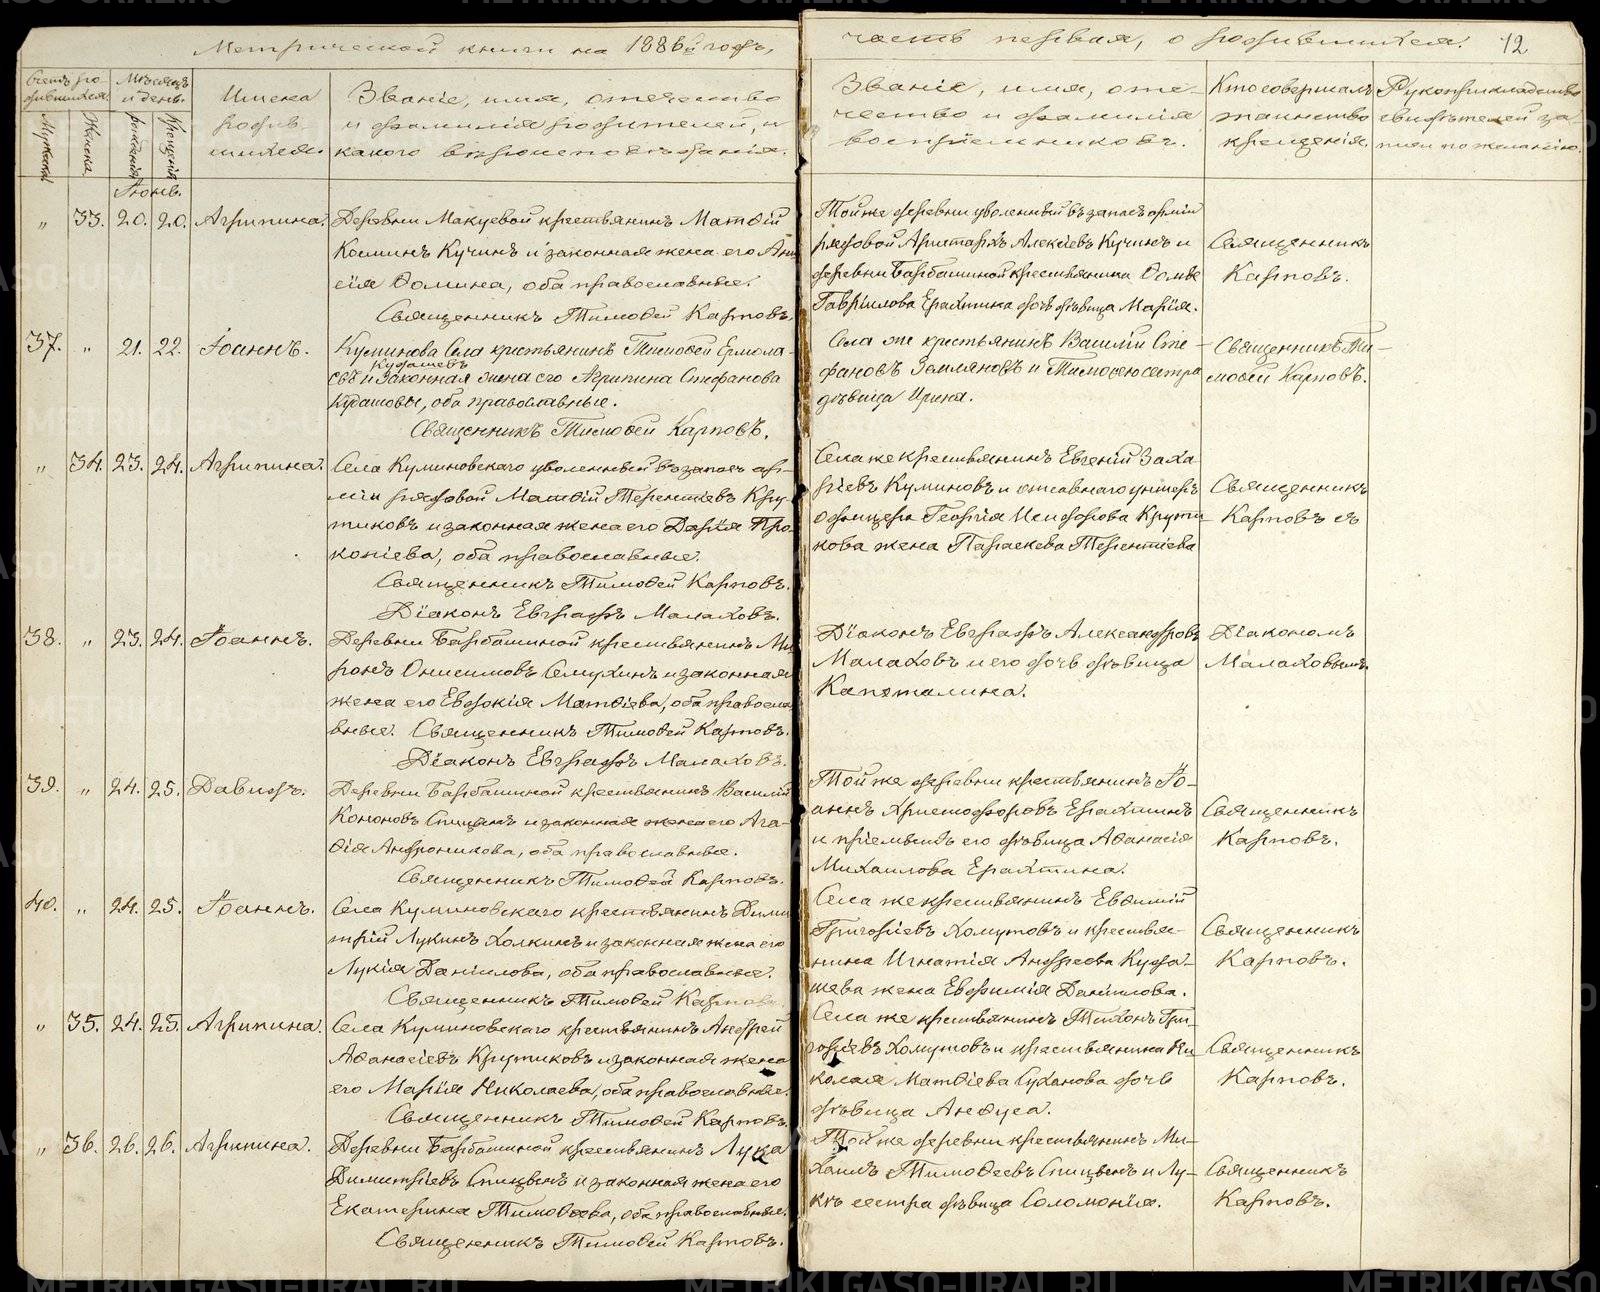 Метрической книги на 1886й годъ,
часть первая, о родившихся. 12
Счетъ родившихся.
Мѣсяцъ и день.
Имена родившихся.
Званіе, имя, отчество
и фамилія родителей, и
какого вѣроисповѣданія.
Званіе, имя, оте-
чество и фамилія
воспріемниковъ.
Кто совершалъ
таинство
крещенія.
Рукоприкладство
свидѣтелей за-
писи по желанію.
Мужска
Женска
рожденія
Крещенія
Іюнь.
„ 33. 20. 20. Агрипина.
Деревни Макуевой крестьянинъ Матѳій
Косминъ Кучинъ и законная жена его Ани-
сія Ѳомина, оба православные.
Священникъ Тимоѳей Карповъ.
Той же деревни уволенный въ запасъ арміи
рядовой Аристархъ Алексіевъ Кучинъ и
деревни Барбашиной крестьянина Ѳомы
Гавріилова Ерахтина дочь дѣвица Марія.
Священникъ
Карповъ.
37. „ 21. 22. Іоаннъ.
Куминова Села крестьянинъ Тимоѳей Ермола-
Кудашевъ
евъ и Законная жена его Агрипина Стефанова
Кудашовы, оба православные.
Священникъ Тимоѳей Карповъ.
Села же крестьянинъ Василій Сте-
фановъ Земляновъ и Тимоѳею сестра
дѣвица Ирина.
Священникъ Ти-
моѳей Карповъ.
„ 34. 23. 24. Агрипина.
Села Куминовскаго уволенный въ запасъ ар-
міи рядовой Матѳій Терентіевъ Кру-
тиковъ и законная жена его Дарія Про-
копіева, оба православные.
Священникъ Тимоѳей Карповъ.
Діаконъ Евграфъ Малаховъ.
Села же крестьянинъ Евгеній Заха-
ріевъ Куминовъ и отставнаго унтеръ
офицера Георгія Исидорова Крути-
кова жена Параскева Терентіева
Священникъ
Карповъ съ
38. „ 23. 24. Іоаннъ.
Деревни Барбашиной крестьянинъ Ми-
ронъ Онисимовъ Семухинъ и законная
жена его Евдокія Матѳіева, оба правосла-
вные. Священникъ Тимоѳей Карповъ.
Діаконъ Евграфъ Малаховъ.
Діаконъ Евграфъ Александровъ
Малаховъ и его дочь дѣвица
Капоталина.
Діакономъ
Малаховымъ.
39. „ 24. 25. Давидъ.
Деревни Барбашиной крестьянинъ Василій
Кононовъ Спицынъ и законная жена его Ага-
ѳія Андроникова, оба православные.
Священникъ Тимоѳей Карповъ.
Той же деревни крестьянинъ Іо-
аннъ Христофоровъ Ерахтинъ
и пріемышъ его дѣвица Аѳанасія
Михаилова Ерахтина.
Священникъ
Карповъ.
40. „ 24. 25. Іоаннъ.
Села Куминовскаго крестьянинъ Дими-
трій Лукинъ Холкинъ и законная жена его
Лукія Даніилова, оба православные.
Священникъ Тимоѳей Карповъ.
Села же крестьянинъ Евѳимій
Григоріевъ Хомутовъ и крестья-
нина Игнатія Андреева Куда-
шева жена Евдокимія Даніилова.
Священникъ
Карповъ.
„ 35. 24. 25. Агрипина.
Села Куминовскаго крестьянинъ Андрей
Аѳанасіевъ Крутиковъ и законная жена
его Марія Николаева, оба православные.
Священникъ Тимоѳей Карповъ.
Села же крестьянинъ Тихонъ Гри-
горіевъ Хомутовъ и крестьянина Ни-
колая Матѳіева Суханова дочь
дѣвица Анѳуса.
Священникъ
Карповъ.
„ 36. 26. 26. Агрипина.
Деревни Барбашиной крестьянинъ Лука
Димитріевъ Спицынъ и законная жена его
Екатерина Тимоѳеева, оба православные.
Священникъ Тимоѳей Карповъ.
Той же деревни крестьянинъ Ми-
хаилъ Тимоѳеевъ Спицынъ и Лу-
кѣ сестра дѣвица Соломонія.
Священникъ
Карповъ.
METRIKI.GASO-URAL.RU